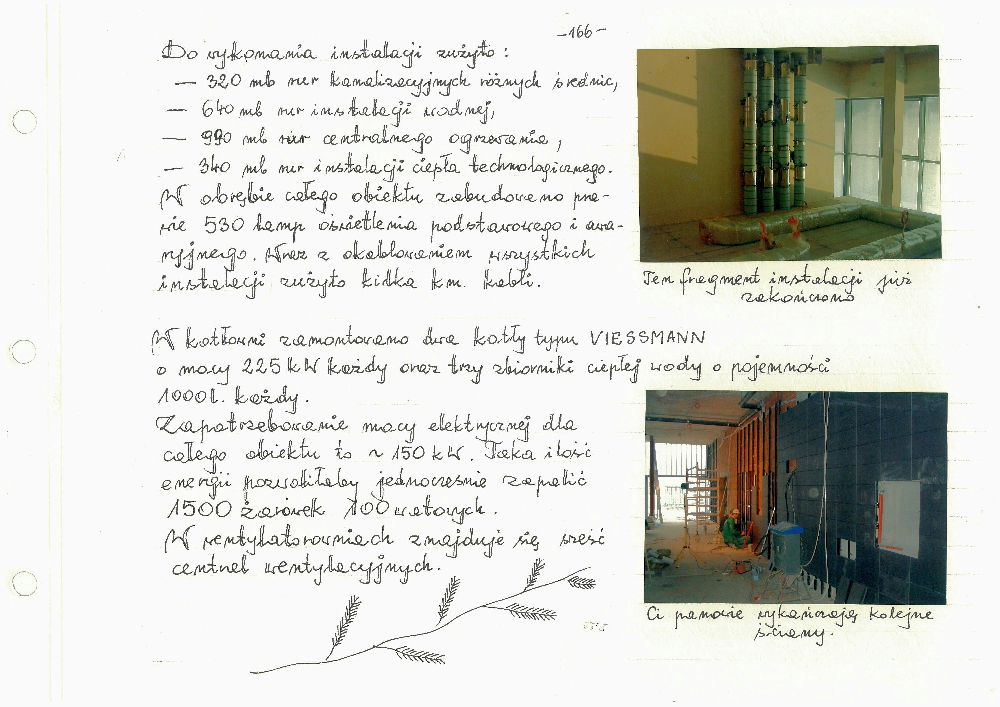 -166-
Do wykonania instalacji zużyto:
— 320 mb rur kanalizacyjnych różnych średnic,
— 640 mb rur instalacji wodnej,
— 990 mb rur centralnego ogrzewania,
— 340 mb rur instalacji ciepła technologicznego.
W obrębie całego obiektu zabudowano pra-
wie 530 lamp oświetlenia podstawowego i awa-
ryjnego. Wraz z okablowaniem wszystkich
instalacji zużyto kilka km. kabli.
Ten fragment instalacji już
zakończono
W kotłowni zamontowano dwa kotły typu VIESSMANN
o mocy 225 kW każdy oraz trzy zbiorniki ciepłej wody o pojemności
1000 l. każdy.
Zapotrzebowanie mocy elektrycznej dla
całego obiektu to ~ 150 kW. Taka ilość
energii pozwoliłaby jednocześnie zapalić
1500 żarówek 100 watowych.
W wentylatorowniach znajduje się sześć
central wentylacyjnych.
Ci panowie wykańczają kolejne
ściany.